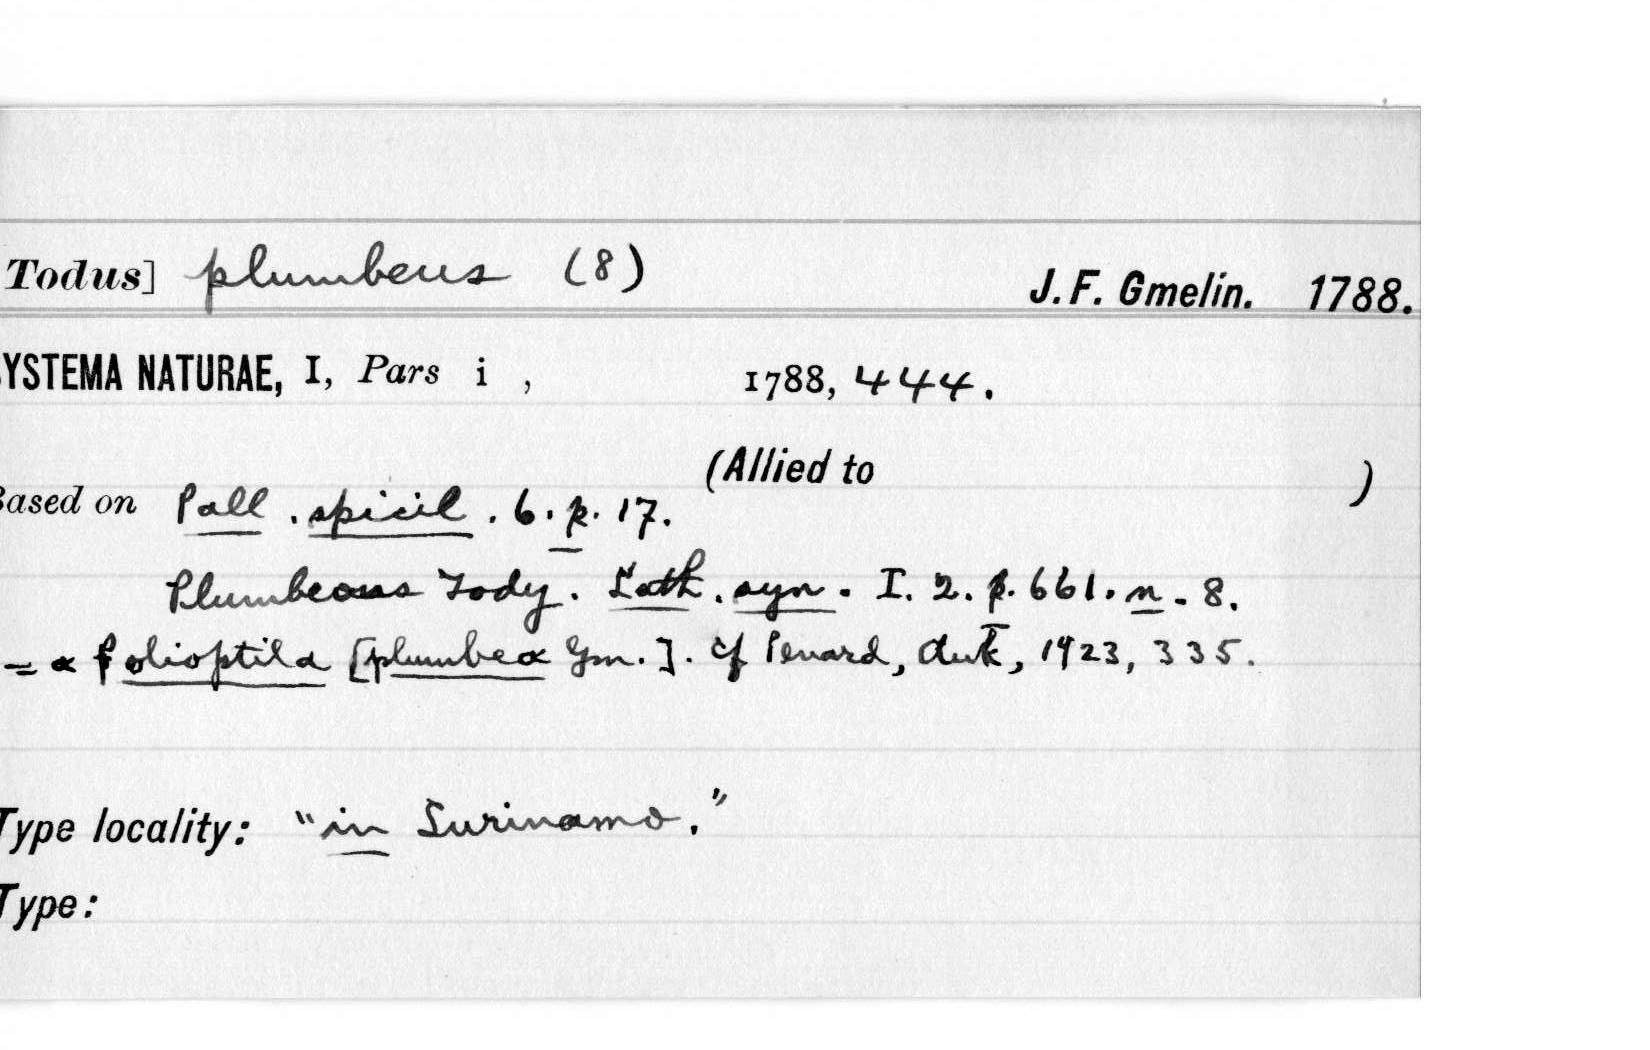 Todus] plumbeus (8) J. F. Gmelin. 1788.
YSTEMA NATURAE, I, Pars i , 1788, 444.
(Allied to )
Based on Pall. spicil. 6. p. 17.
Plumbeous Tody. Lath. syn. I. 2. p. 661. n. 8.
= a Polioptila [plumbea Gm.]. cf Penard, Auk, 1923, 335.
Type locality: "in Surinamo."
Type: